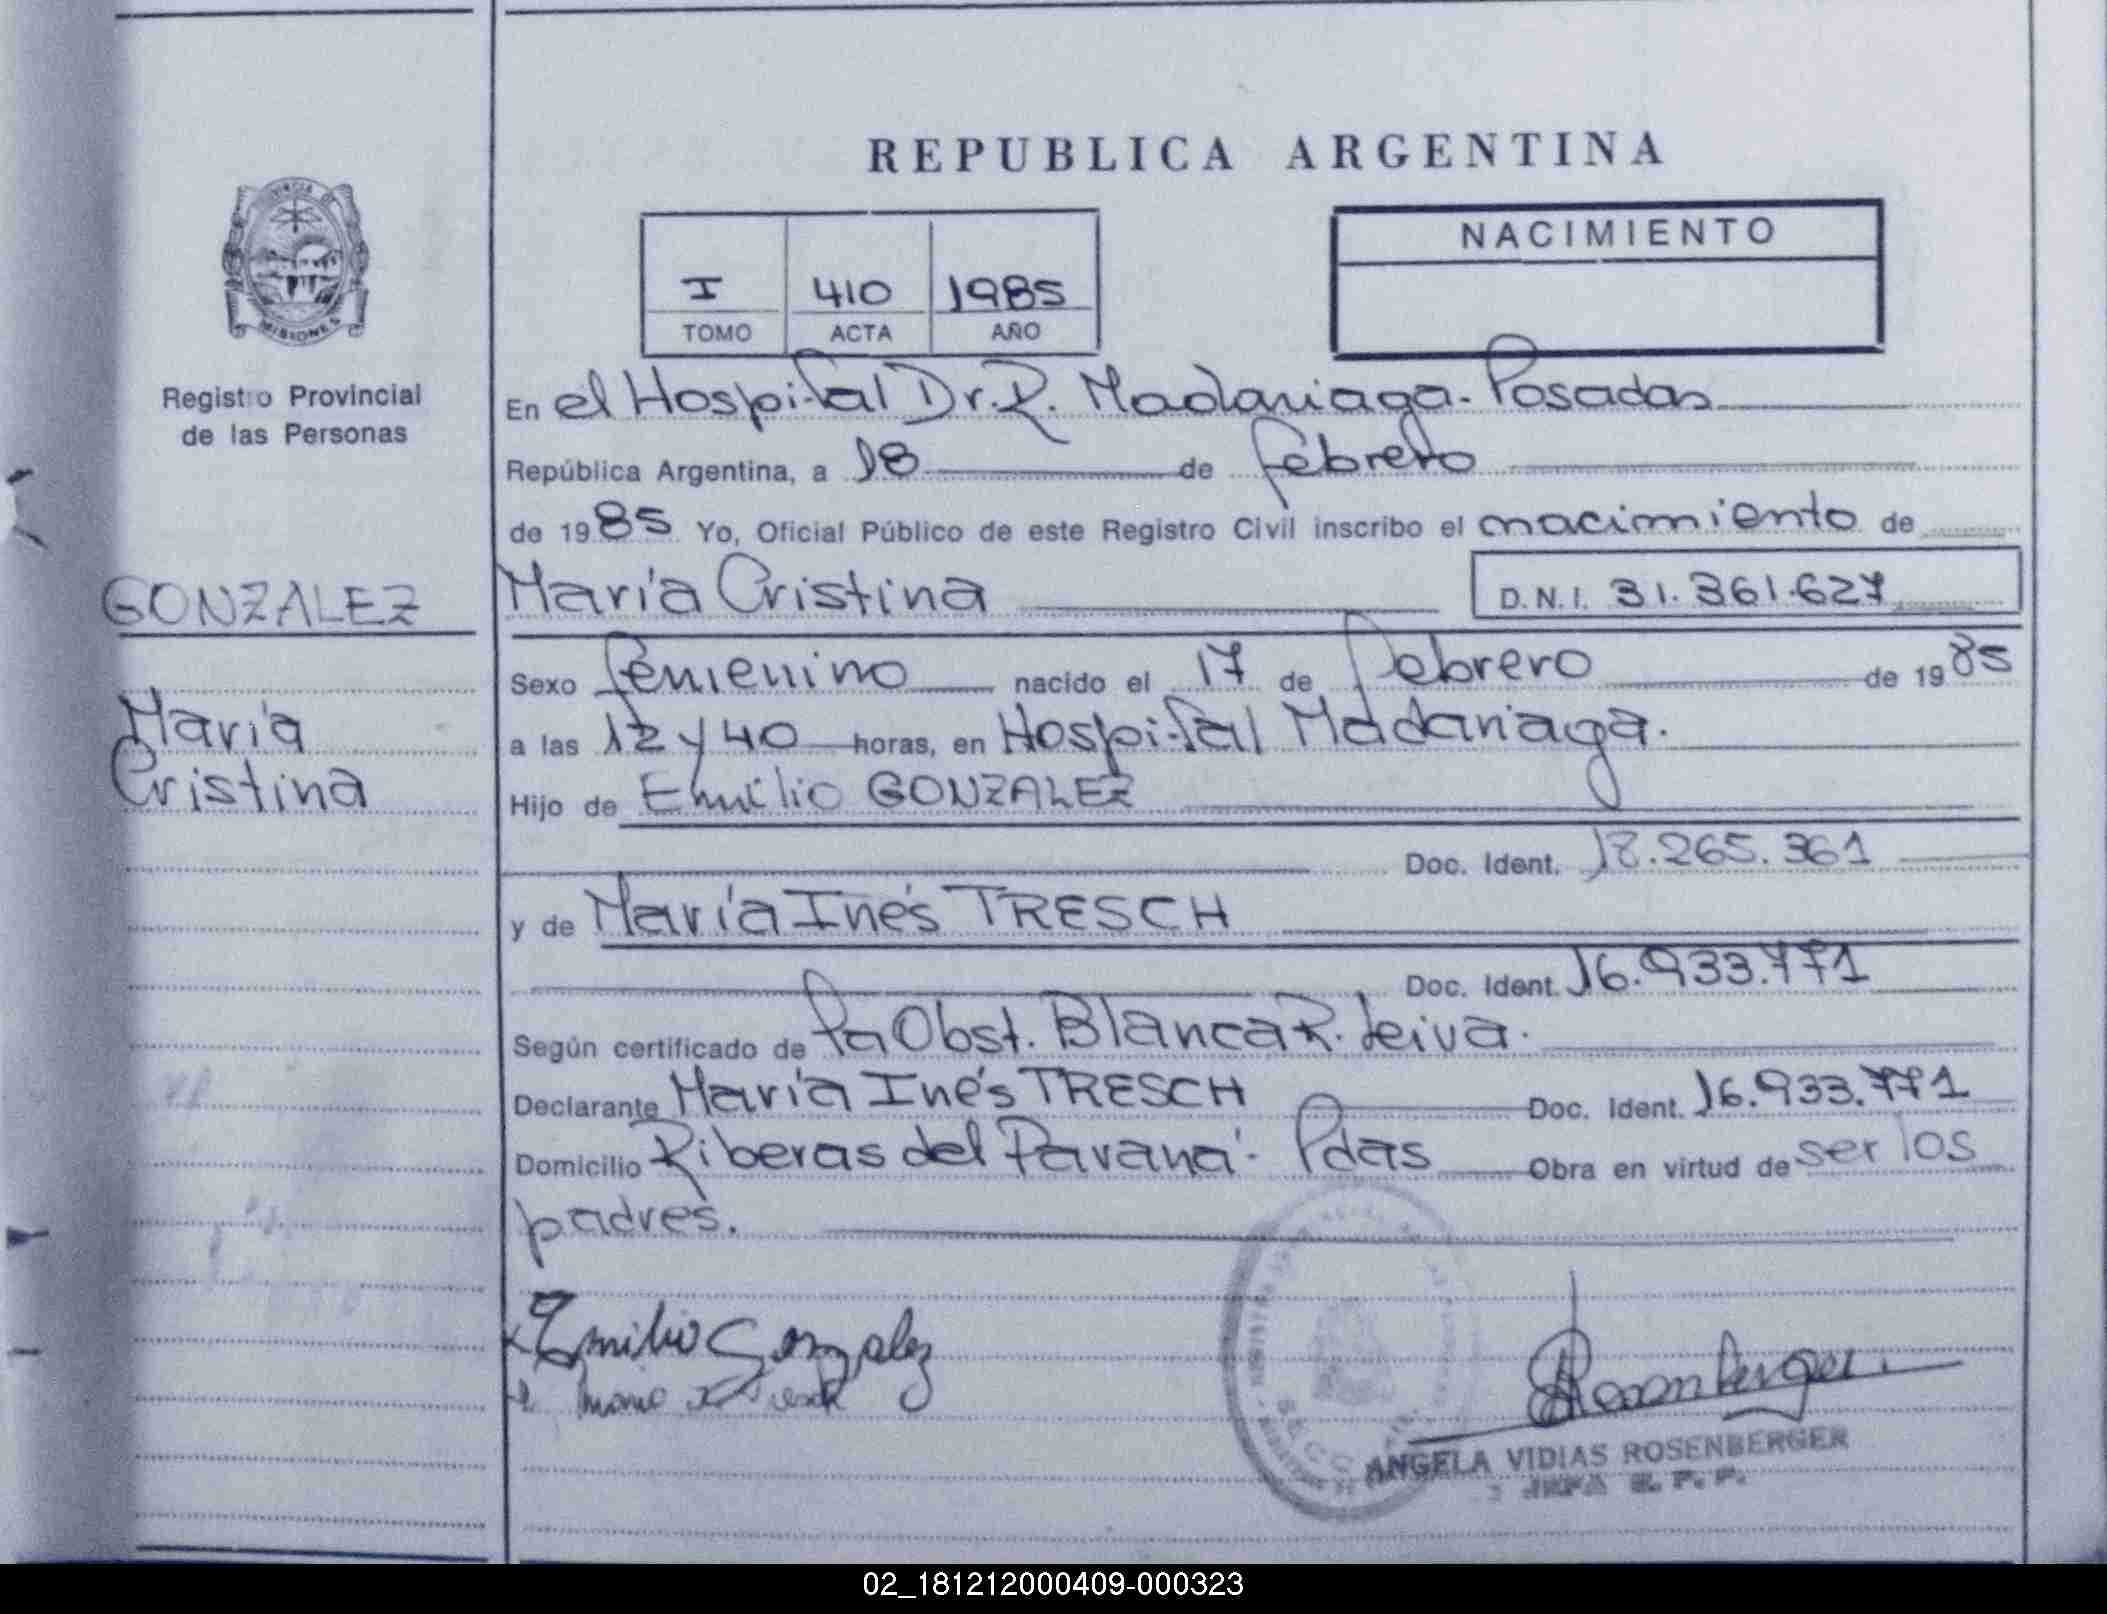 REPUBLICA ARGENTINA
NACIMIENTO
I 410 1985
TOMO ACTA AÑO
PROVINCIA
MISIONES
Registro Provincial
de las Personas
GONZALEZ
María
Cristina
En el Hospital Dr. R. Madariaga - Posadas
República Argentina, a 18 de febrero
de 1985 Yo, Oficial Público de este Registro Civil inscribo el nacimiento de
María Cristina D.N.I. 31.361.627
Sexo femenino nacido el 17 de febrero de 1985
a las 12 y 40 horas, en Hospital Madariaga.
Hijo de Emilio GONZALEZ
Doc. Ident. 18.265.361
y de María Inés TRESCH
Doc. Ident. 16.933.771
Según certificado de Pa Obst. Blanca R. Leiva.
Declarante María Inés TRESCH Doc. Ident. 16.933.771
Domicilio Riberas del Paraná - Pdas Obra en virtud de ser los
padres.
Emilio Gonzalez
Rosenberger
ANGELA VIDIAS ROSENBERGER
JEFA
02_181212000409-000323